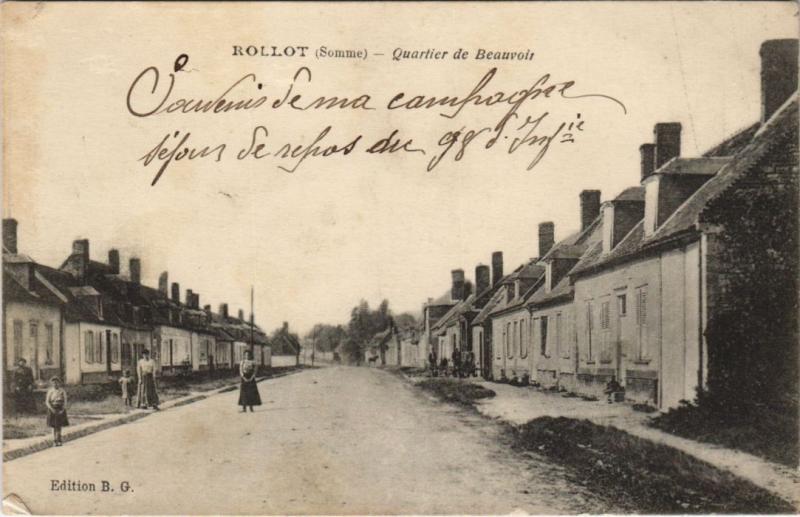 ROLLOT (Somme) — Quartier de Beauvois
Souvenis de ma campagne
séjour de repos du 98 d'Infie
Edition B. G.